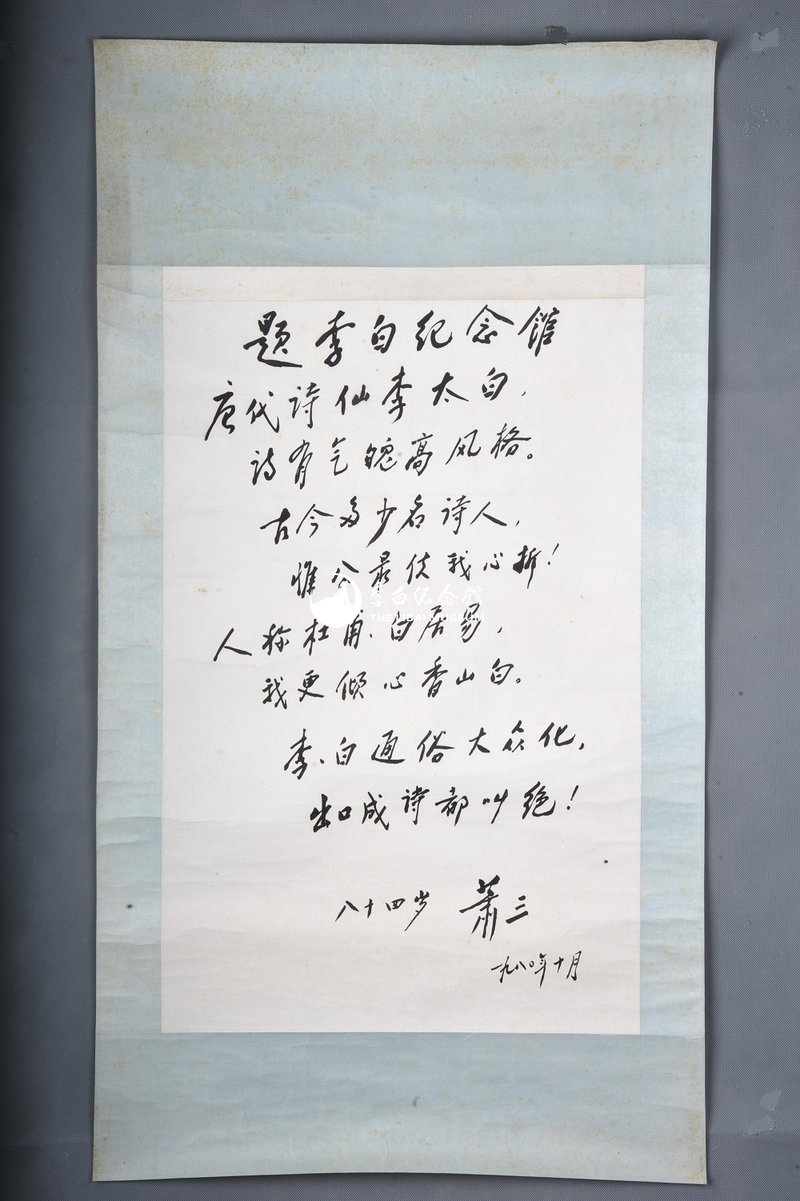 题李白纪念馆
唐代诗仙李太白，
诗有气魄高风格。
古今多少名诗人，
惟公最使我心折！
人称杜甫、白居易，
我更倾心香山白。
李、白通俗大众化，
出口成诗都叫绝！
八十四岁 萧三
一九八〇年十月
李白纪念馆